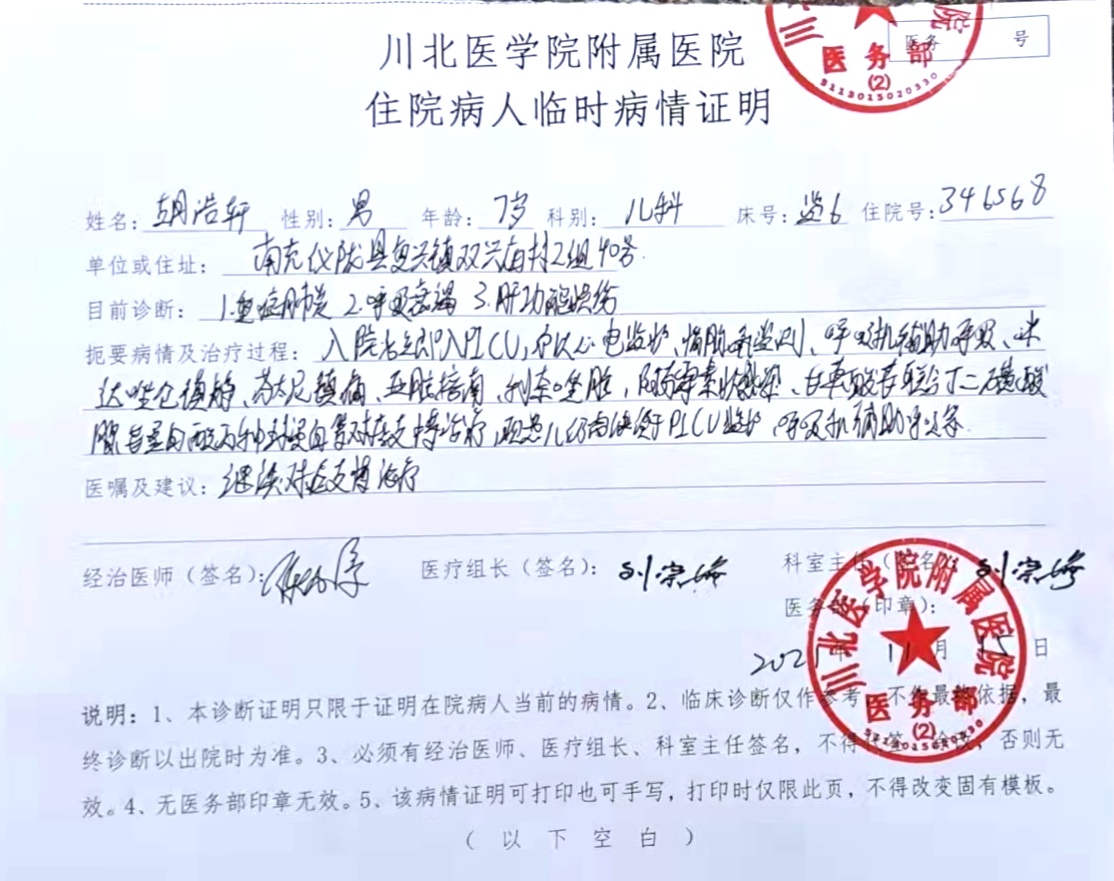 川北医学院附属医院
住院病人临时病情证明
医务 号
医务部
(2)
5113015020330
姓名: 胡浩轩 性别: 男 年龄: 7岁 科别: 儿科 床号: 监6 住院号: 346568
单位或住址: 南充仪陇县复兴镇双兴庙村2组40号
目前诊断: 1.重症肺炎 2.呼吸衰竭 3.肝功能损伤
扼要病情及治疗过程: 入院后立即入PICU,予以心电监护、脑肺氧监测、呼吸机辅助呼吸、咪
达唑仑镇静、芬太尼镇痛、亚胺培南、利奈唑胺、阿奇霉素抗感染、
丙种球蛋白等对症支持治疗,现患儿仍需继续于PICU监护、呼吸机辅助呼吸等
医嘱及建议: 继续对症支持治疗
经治医师(签名): 医疗组长(签名): 刘宗海 科室主任(签名): 刘宗海
医务部(印章):
2021 11月15日
川北医学院附属医院
医务部
(2)
5113015020330
说明: 1、本诊断证明只限于证明在院病人当前的病情。2、临床诊断仅作参考,不作最终依据,最
终诊断以出院时为准。3、必须有经治医师、医疗组长、科室主任签名,不得代签、涂改,否则无
效。4、无医务部印章无效。5、该病情证明可打印也可手写,打印时仅限此页,不得改变固有模板。
(以下空白)